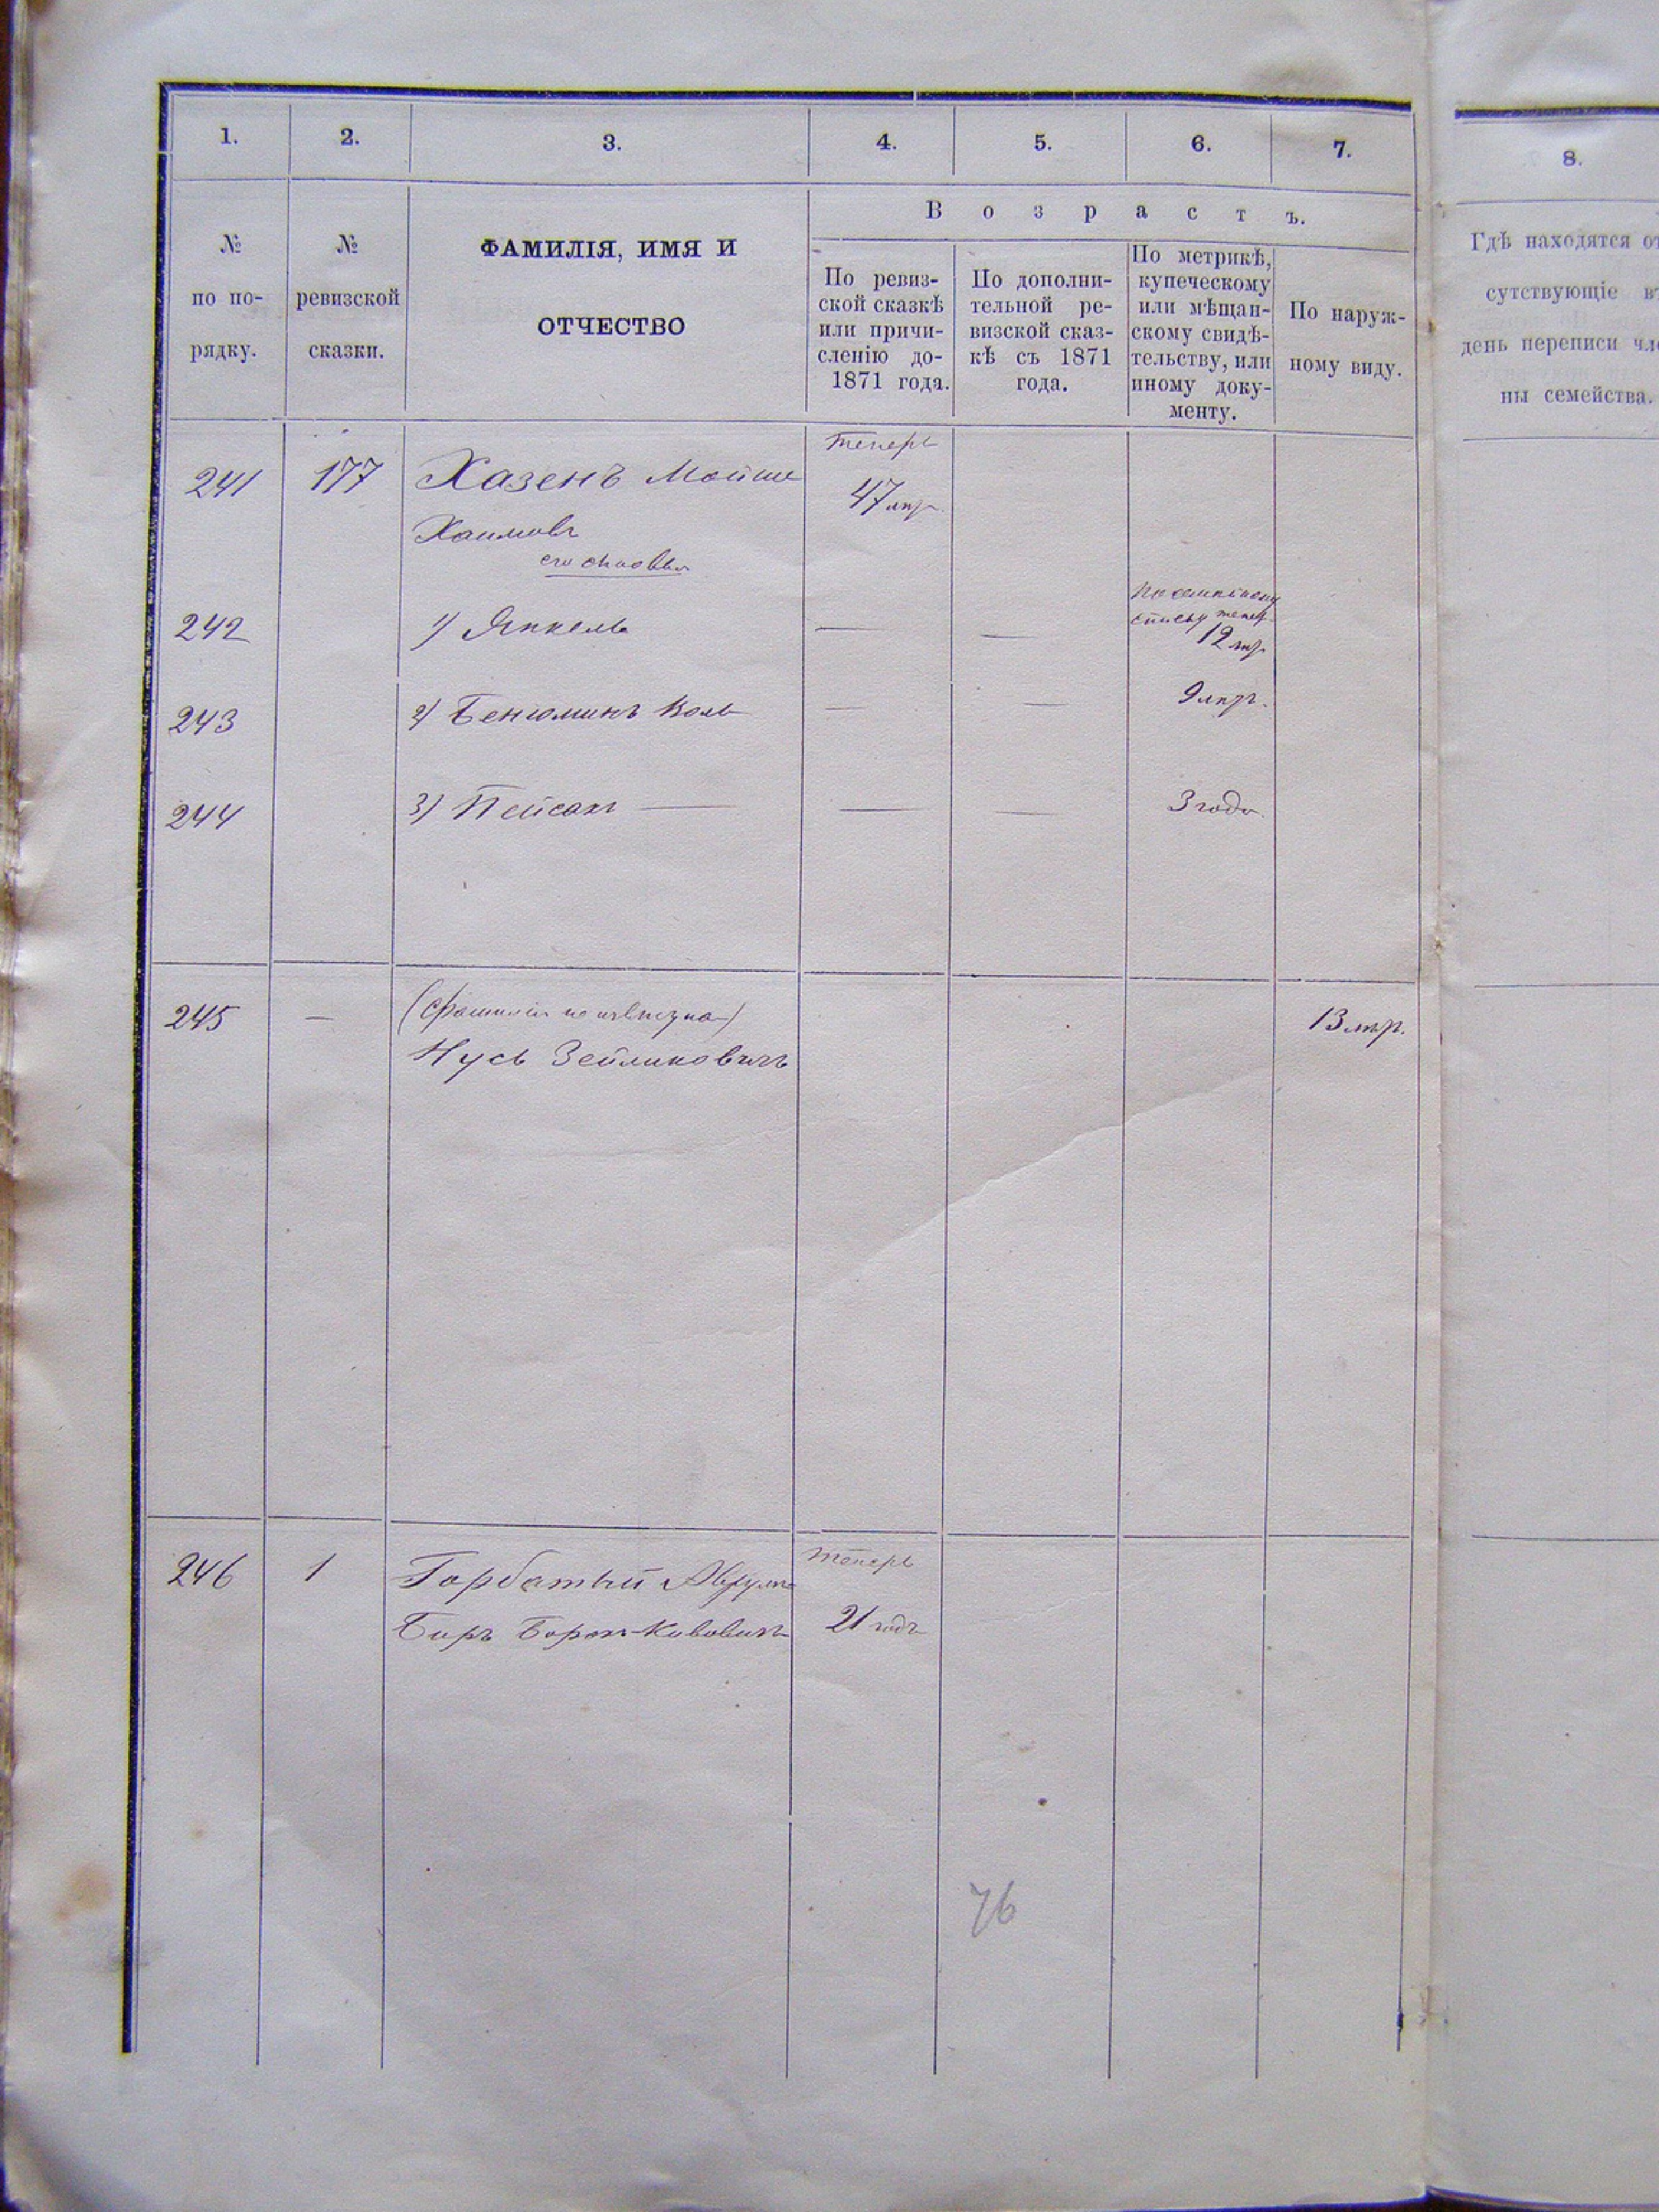 1. 2. 3. 4. 5. 6. 7.
8.
Возрастъ.
№ по по-рядку.
№ ревизской сказки.
ФАМИЛІЯ, ИМЯ И
ОТЧЕСТВО
По ревиз-
ской сказкѣ
или причи-
сленію до-
1871 года.
По дополни-
тельной ре-
визской сказ-
кѣ съ 1871
года.
По метрикѣ,
купеческому
или мѣщан-
скому свидѣ-
тельству, или
иному доку-
менту.
По наруж-
ному виду.
Гдѣ находятся от
сутствующіе въ
день переписи чле
ны семейства.
теперь
241 177 Хазенъ Мойше 47 лѣтъ
Хаимовъ
его сыновья
По семейному
списку теперь
242 1) Янкель — — 12 лѣтъ
243 2) Бенюминъ Воль — — 9 лѣтъ.
244 3) Пейсахъ — — — 3 года
245 — (фамилія неизвѣстна) 13 лѣтъ.
Нусь Зейликовичъ
теперь
246 1 Горбатый Аврумъ
Беръ Борох-Кивовичъ 21 годъ
76